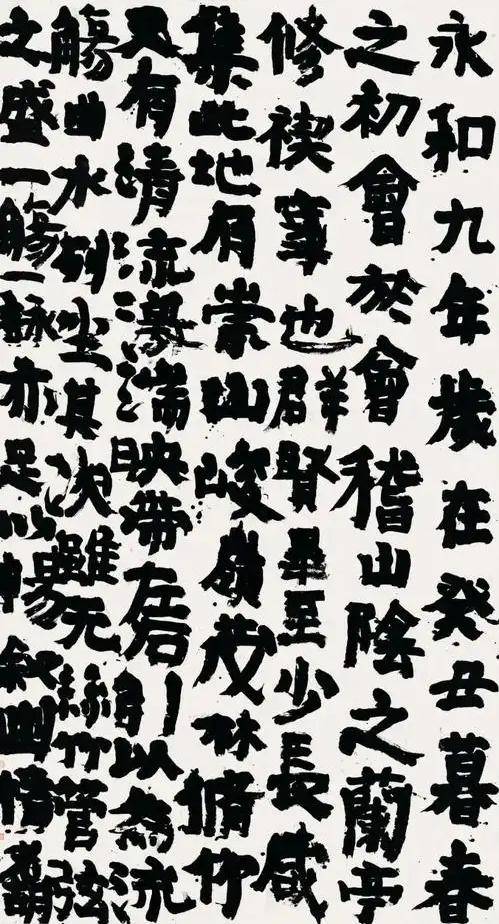 永和九年歲在癸丑暮春
之初會於會稽山陰之蘭亭
修禊事也群賢畢至少長咸
集此地有崇山峻嶺茂林脩竹
又有清流激湍映帶左右引以為流
觴曲水列坐其次雖无絲竹管弦
之盛一觴一詠亦足以暢敘幽情